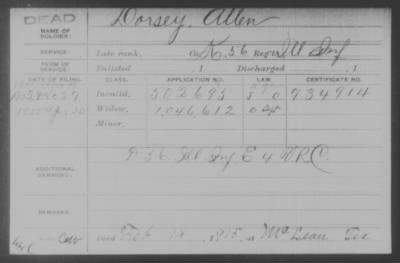 DEAD
NAME OF SOLDIER:
Dorsey, Allen
SERVICE:
Late rank, Co. K, 56 Reg't Ill Inf
TERM OF SERVICE:
Enlisted , 1 Discharged , 1
DATE OF FILING CLASS. APPLICATION NO. LAW CERTIFICATE NO.
Invalid, 502,693 934914
Widow, 1,046,612
Minor,
ADDITIONAL SERVICES:
56 Ill Inf E 4 V.R.C.
REMARKS:
Died Feb 14, at McLean